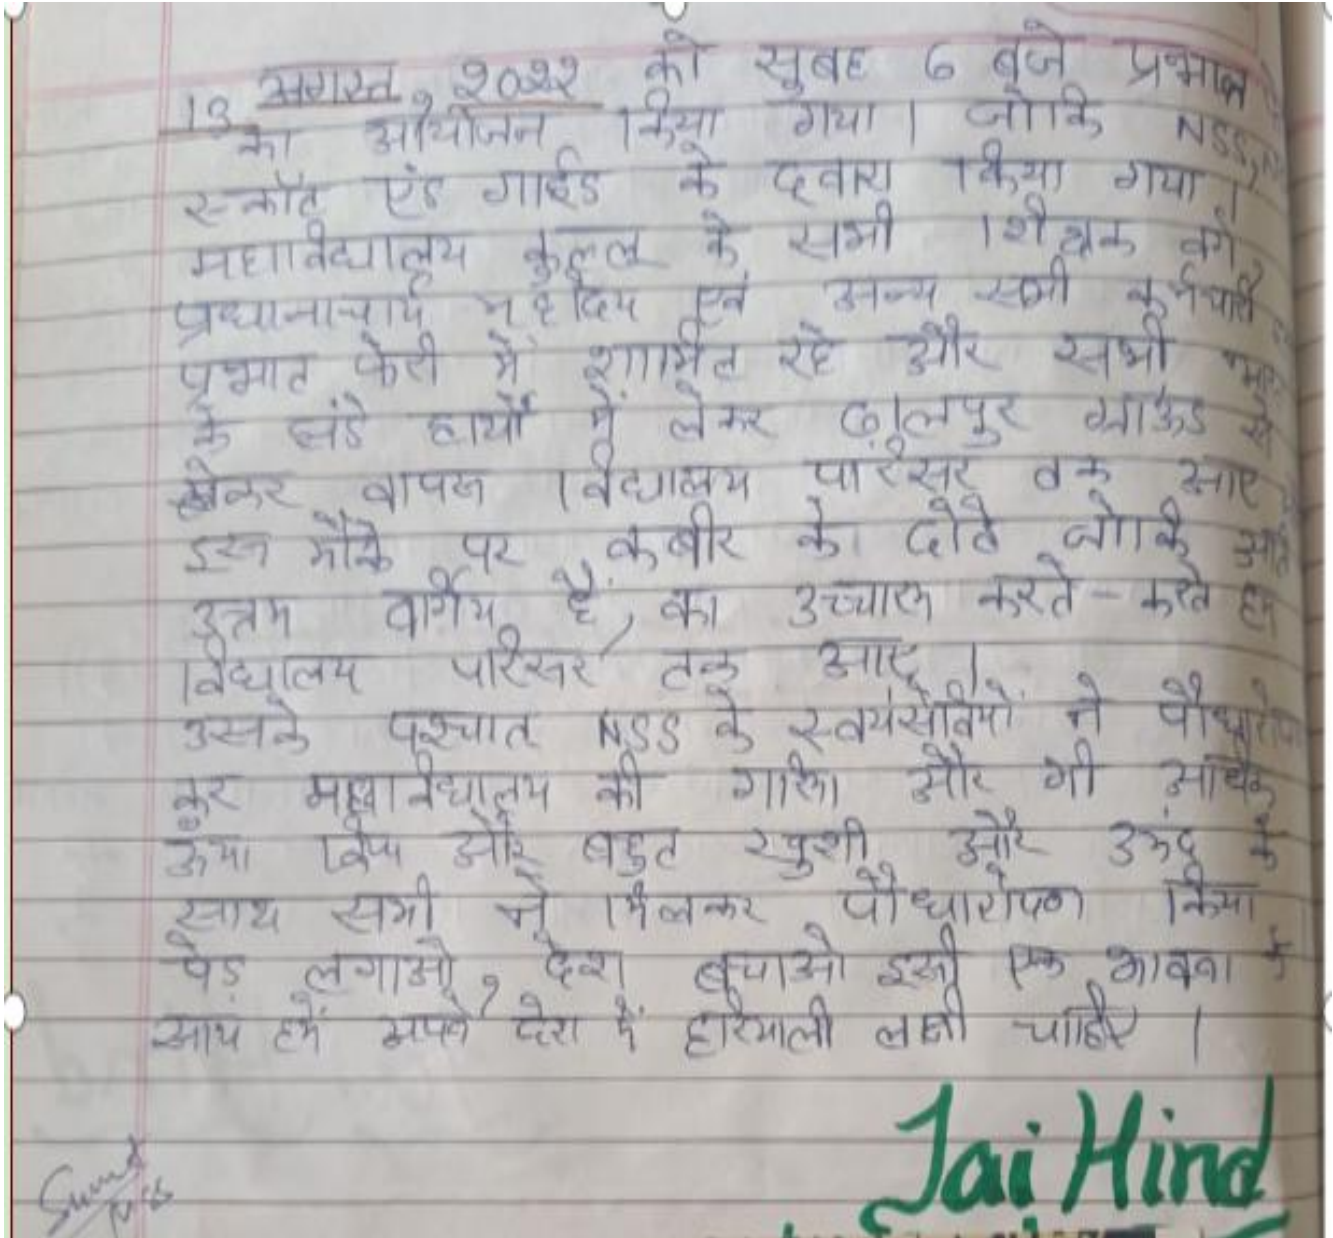 13 अगस्त, २०२२ को सुबह 6 बजे प्रभात
का आयोजन किया गया। जोकि NSS,
स्कॉट एंड गाईड के द्वारा किया गया।
महाविद्यालय कुल्लू के सभी शिक्षक वर्ग,
प्रधानाचार्य महोदय एवं अन्य सभी कर्मचारी
प्रभात फेरी में शामिल रहे और सभी
के झंडे हाथों में लेकर ढालपुर ग्राऊंड से
लेकर वापस विद्यालय परिसर तक आए
इस मौके पर कबीर के दोहे जोकि
उत्तम वर्गीय हैं, का उच्चारण करते-करते हम
विद्यालय परिसर तक आए।
उसके पश्चात NSS के स्वयंसेवियों ने पौधारोपण
कर महाविद्यालय की गरिमा और भी अधिक
ऊंचा किया और बहुत खुशी और के
साथ सभी ने मिलकर पौधारोपण किया
पेड़ लगाओ, देश बचाओ इसी एक भावना के
साथ हमें अपने देश में हरियाली लानी चाहिए।
Jai Hind
NSS